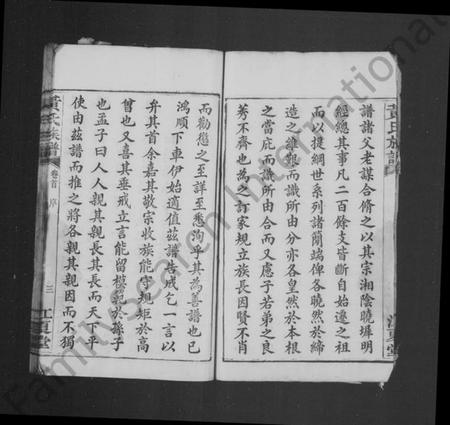 譜諸父老謀合脩之以其宗湘陰曉墀明
經總其事凡二百餘支皆斷自始遷之祖
而以提綱世系列諸簡端俾各曉然於締
造之維艱而識所由分亦各皇然於本根
之當庇而識所由合而又慮子若弟之良
莠不齊也為之訂家規立族長因賢不肖
而勸懲之至詳至悉洵乎其為善譜也已
鴻順下車伊始適值茲譜告成乞一言以
弁其首余嘉其敬宗收族能守規矩於高
曾也又喜其垂戒立言能留模範於孫子
也孟子曰人人親其親長其長而天下平
使由茲譜而推之將各親其親因而不獨
黃氏族譜
卷首 序
三
江夏堂
黃氏族譜
江夏堂
FamilySearch International